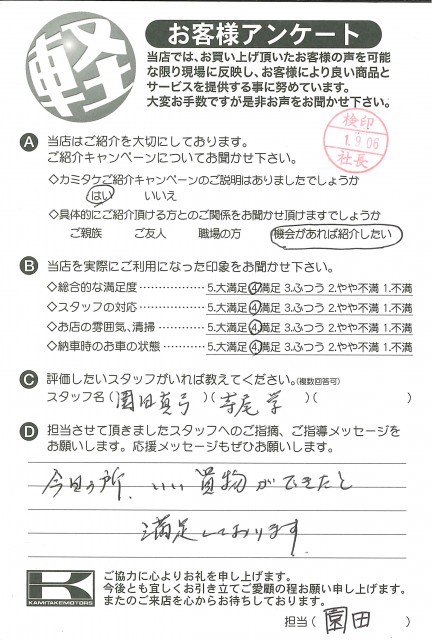 軽
お客様アンケート
当店では、お買い上げ頂いたお客様の声を可能
な限り現場に反映し、お客様により良い商品と
サービスを提供する事に努めています。
大変お手数ですが是非お声をお聞かせ下さい。
検印
1.9.06
社長
A 当店はご紹介を大切にしております。
ご紹介キャンペーンについてお聞かせ下さい。
◇カミタケご紹介キャンペーンのご説明はありましたでしょうか
はい いいえ
◇具体的にご紹介頂ける方とのご関係をお聞かせ頂けますでしょうか
ご親族 ご友人 職場の方 機会があれば紹介したい
B 当店を実際にご利用になった印象をお聞かせ下さい。
◇総合的な満足度 ………………… 5.大満足 4.満足 3.ふつう 2.やや不満 1.不満
◇スタッフの対応 ………………… 5.大満足 4.満足 3.ふつう 2.やや不満 1.不満
◇お店の雰囲気、清掃 …………… 5.大満足 4.満足 3.ふつう 2.やや不満 1.不満
◇納車時のお車の状態 …………… 5.大満足 4.満足 3.ふつう 2.やや不満 1.不満
C 評価したいスタッフがいれば教えてください。(複数回答可)
スタッフ名 ( 園田真弓 )( 寺尾 学 )( )
D 担当させて頂きましたスタッフへのご指摘、ご指導メッセージを
お願いします。応援メッセージもぜひお願いします。
今日の所、いい買物ができたと
満足しております。
K
KAMITAKEMOTORS
ご協力に心よりお礼を申し上げます。
今後とも宜しくお引き立てご愛顧の程お願い申し上げます。
またのご来店を心からお待ちしております。
担当 ( 園田 )